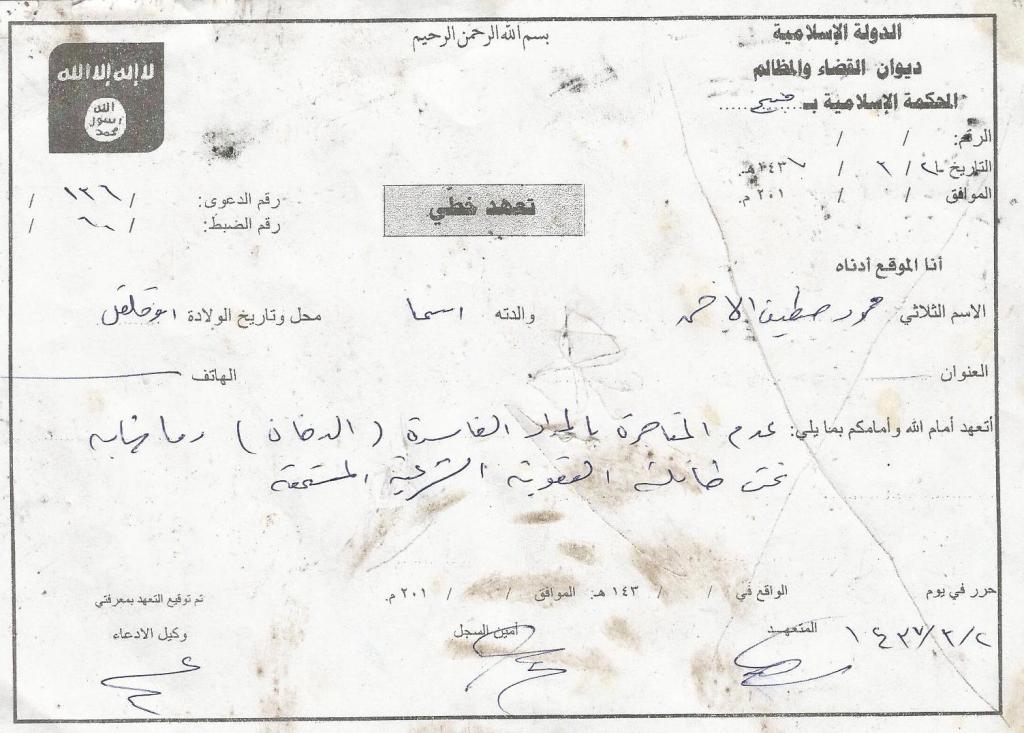 بسم الله الرحمن الرحيم
الدولة الإسلامية
ديوان القضاء والمظالم
المحكمة الإسلامية بـ منبج
لا إله إلا الله
الله
رسول
محمد
الرقم: / /
التاريخ ٢ / ٣ / ١٤٣٧ هـ
الموافق / / ٢٠١ م.
رقم الدعوى: / ١٣٦ /
رقم الضبط: / ٦٠ /
تعهد خطي
أنا الموقع أدناه
الاسم الثلاثي محمود والدته اسما محل وتاريخ الولادة ابو قلقل
العنوان الهاتف
أتعهد أمام الله وأمامكم بما يلي: عدم المتاجرة بالمواد الفاسدة (الدخان) وما شابه
تحت طائلة العقوبة الشرعية المستحقة
حرر في يوم الواقع في / / ١٤٣ هـ: الموافق / / ٢٠١ م.
١٤٣٧/٣/٢
تم توقيع التعهد بمعرفتي
المتعهد أمين السجل وكيل الادعاء